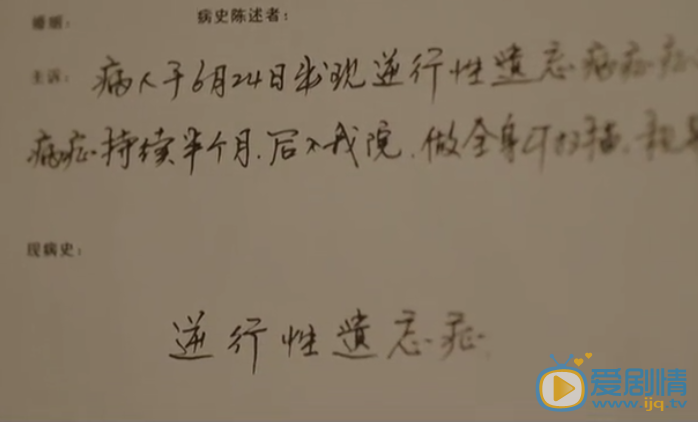 婚姻： 病史陈述者：
主诉： 病人于6月24日出现逆行性遗忘病症症
病症持续半个月.后入我院.做全身CT扫描.
现病史：
逆行性遗忘症
爱剧情
www.ijq.tv